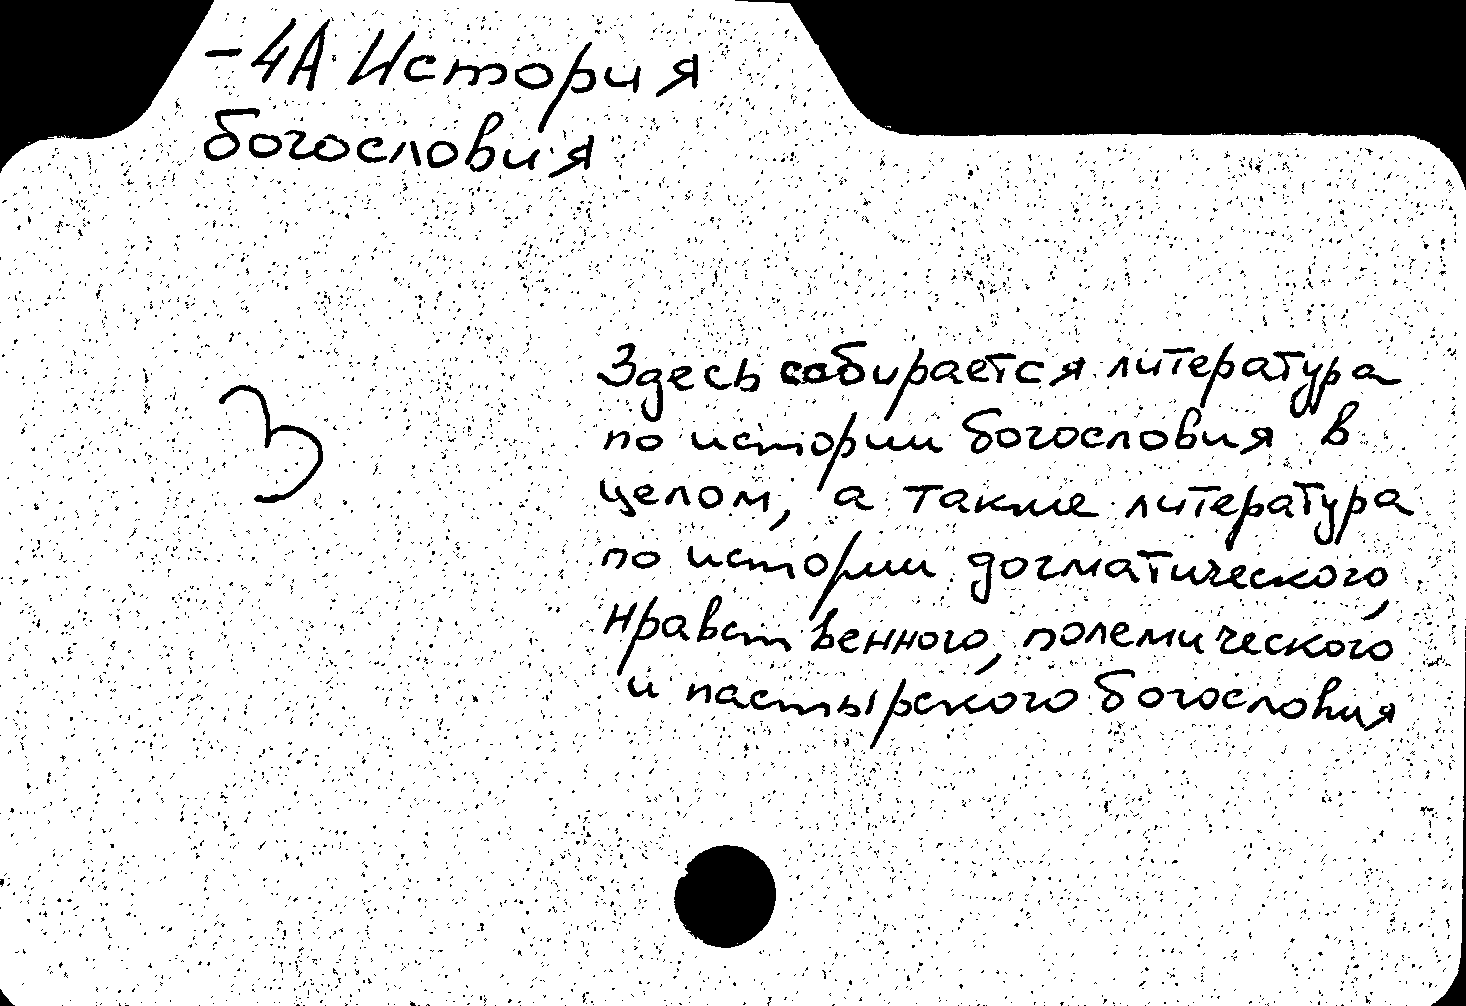 -4А История
богословия
3
Здесь собирается литература
по истории богословия в
целом, а также литература
по истории догматического,
нравственного, полемического
и пастырского богословия